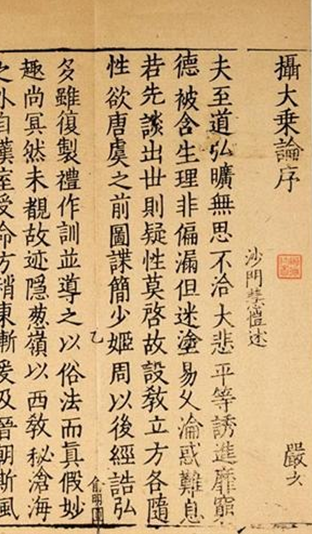 攝大乘論序
嚴六
沙門慧愷述
夫至道弘曠無思不洽大悲平等誘進靡窮
德被含生理非偏漏但迷塗易久淪惑難息
若先談出世則疑性莫啓故設教立方各隨
性欲唐虞之前圖諜簡少姬周以後經誥弘
乙
多雖復製禮作訓並導之以俗法而真假妙
趣尚冥然未覩故迹隱葱嶺以西教祕滄海
之外自漢室受命方稍東漸爰及晉朝斯風